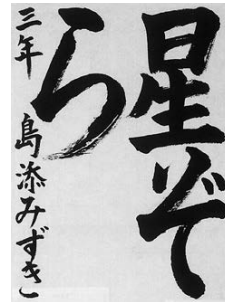 星ぞ
ら
三年 島添みずき